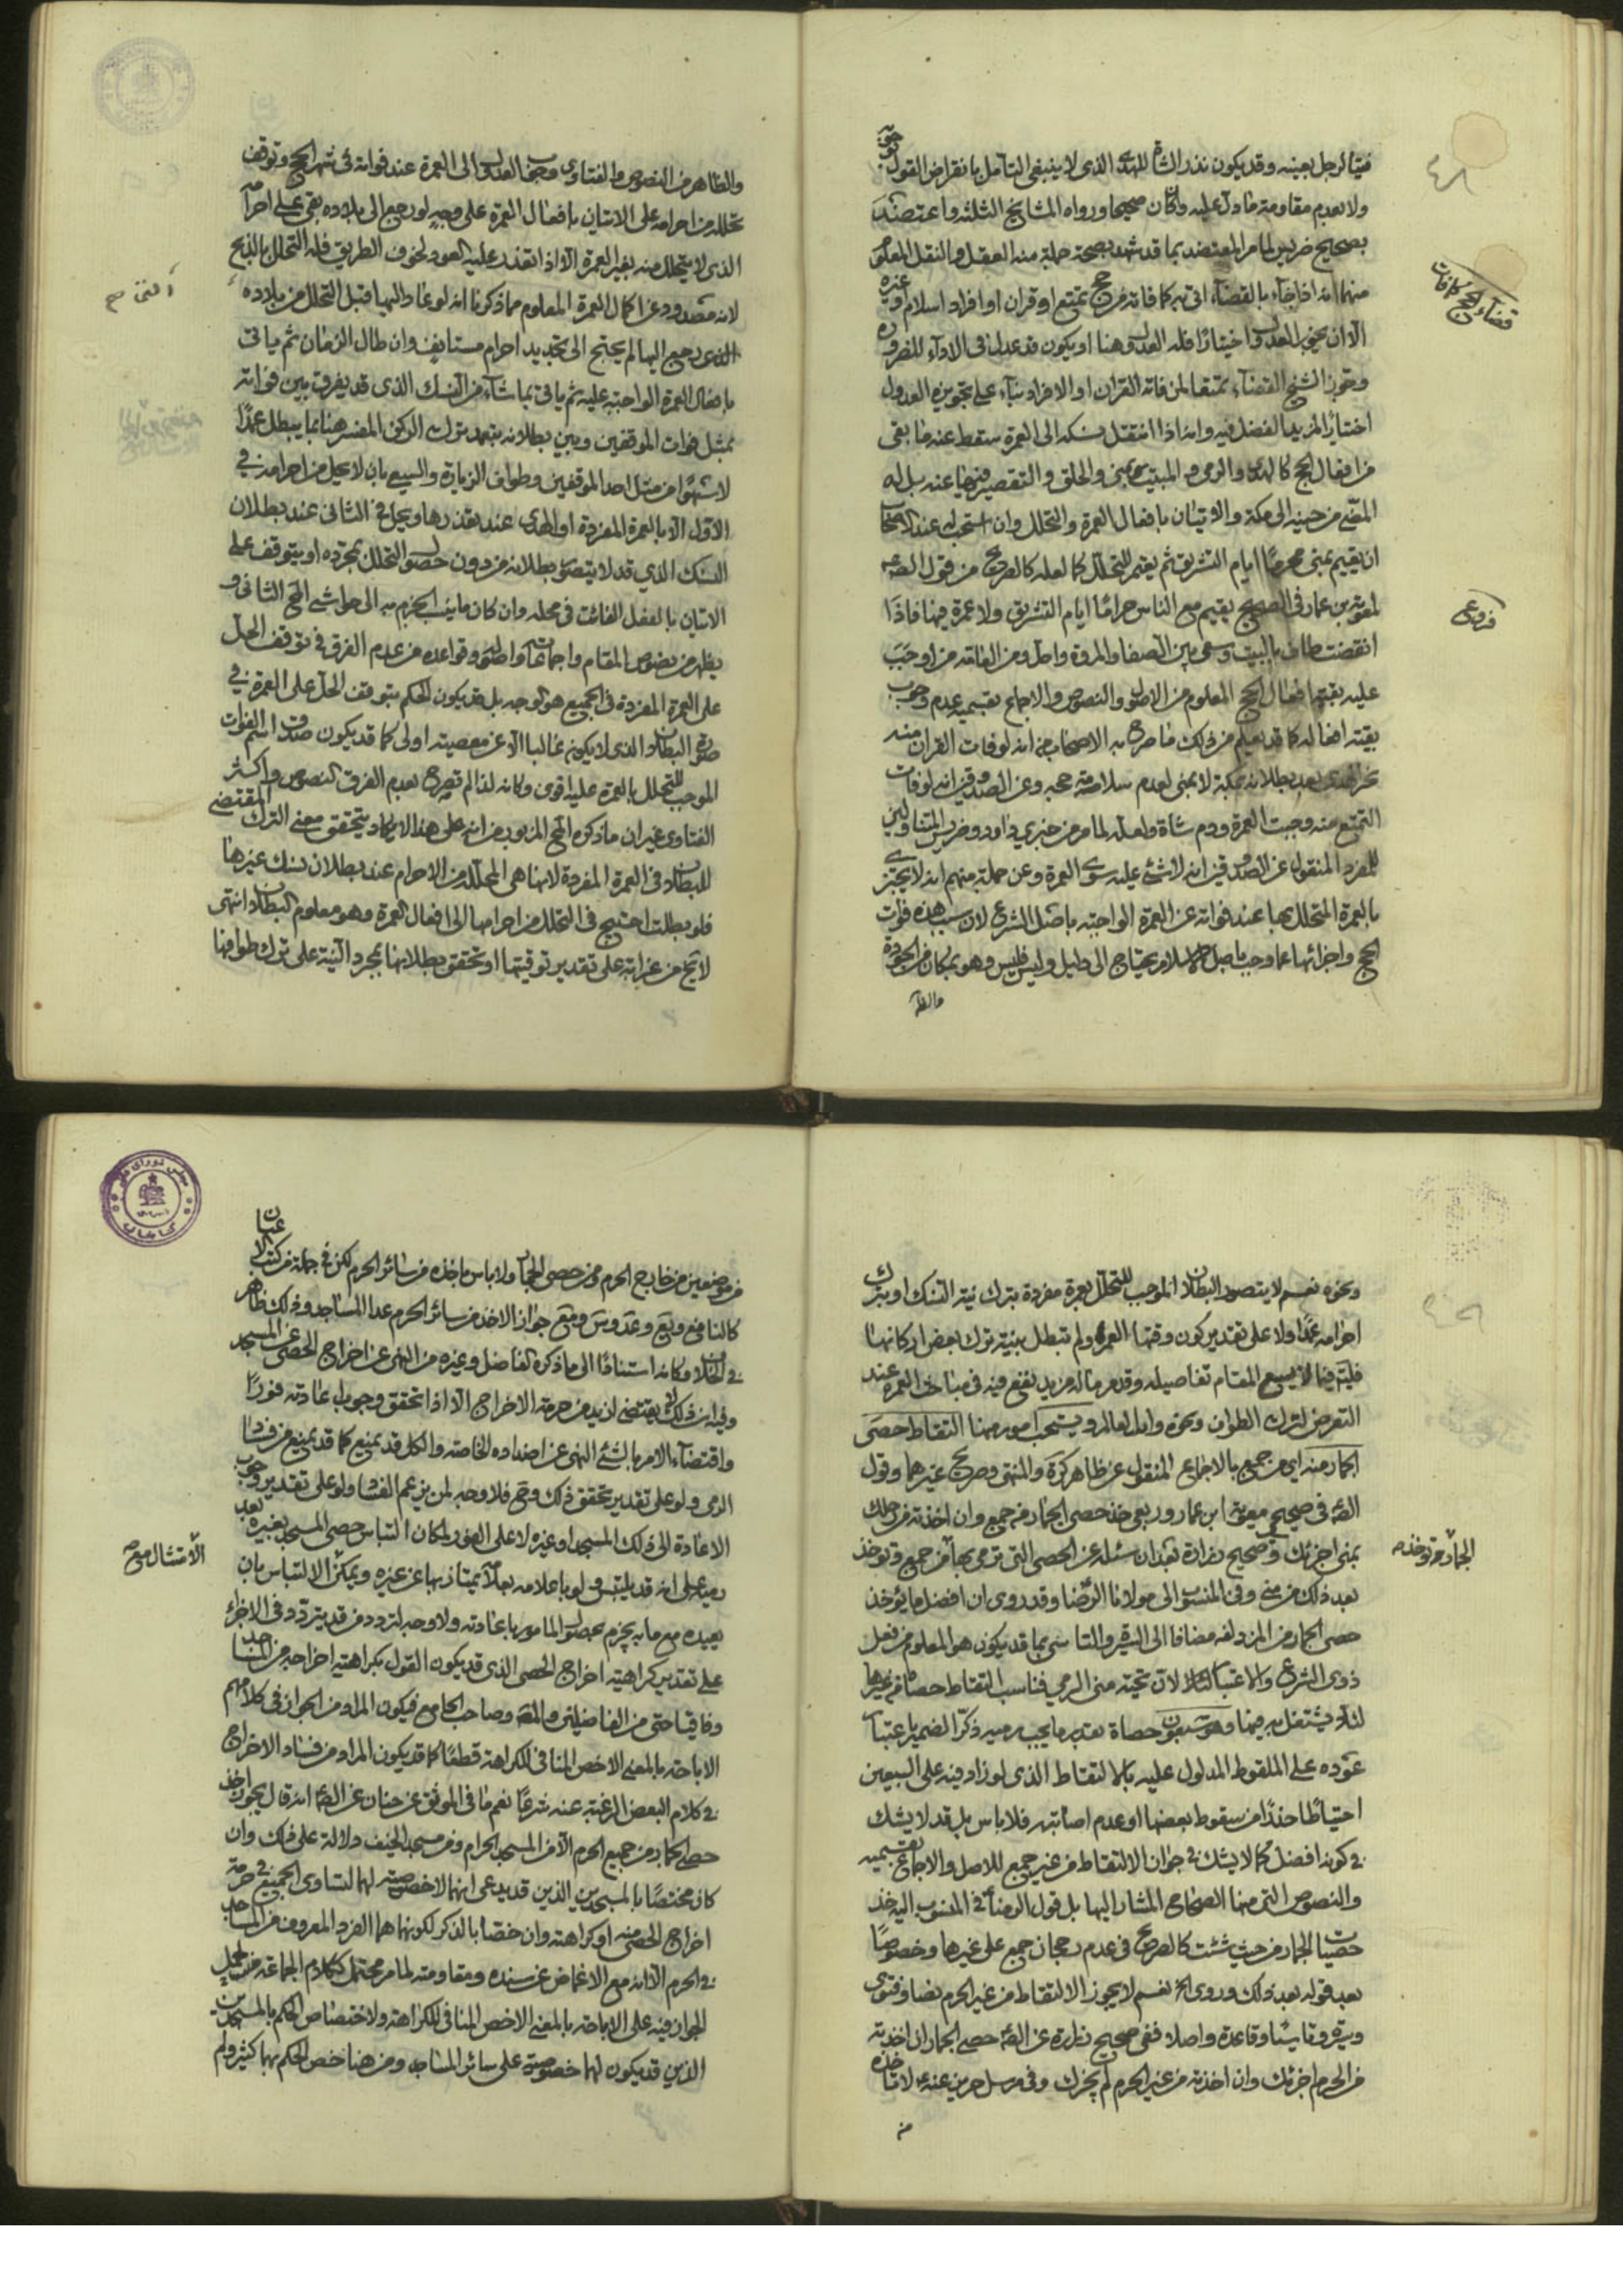 فيتا لرجل بعينه وقد يكون نذر الشاة للهدى الذى لا ينبغى التامل بانقراض القول
ولا بعدم مقاومته ما دل عليه وان كان صحيحا ورواه المشايخ الثلثه واعتضد
بصحيح ضريس لما مر المعتضد بما قد شهد بصحته جملة منه العقل والنقل المعلوم
منهما انه اذا جاء بالقضاء اتى به كما فاته من حج تمتع او قران او افراد اسلام او غيره
الا ان يجوز العدول اختيارا فله العدول هنا او يكون قد عدل فى الاداء للضرورة
وجوز الشيخ القضاء تمتعا لمن فاته القران او الافراد بناء على تجويزه العدول
اختيارا لمزيد الفضل فيه وانه اذا انتقل نسكه الى العمرة سقط عنه ما بقى
من افعال الحج كالهدى والرمى والمبيت بمنى والحلق والتقصير فيها عنه بل له
المضى من حينه الى مكة والاتيان بافعال العمرة والتحلل وان استحب له عند الاصحاب
ان يقيم بمنى محرما ايام التشريق ثم يعتمر للتحلل كما لعله كالصريح من قول الصه
لمعوية بن عمار فى الصحيح يقيم مع الناس حراما ايام التشريق ولا عمرة فيها فاذا
انقضت طاف بالبيت وسعى بين الصفا والمروة واحل ومن الفاقه من اوجب
عليه بقية افعال الحج المعلوم من الاصل والنصوص والاجماع بقسميه عدم وجوب
بقية افعاله كما قد يعلم من ذلك ما صرح به الاصحاب من انه لو فات القران منه
نحر الهدى بعد بطلانه بمكة لا بمنى لعدم سلامة حجه وعن الصدوقين انه لو فات
التمتع منه وجبت العمرة ودم شاة ولعله لما مر من خبرى داود وضريس المتناولين
للمفرد المنقول عن الصدوقين انه لا شئ عليه سوى العمرة وعن جملة منهم انه لا يجتزى
بالعمرة المتحلل بها عند فواته عن العمرة الواجبة باصل الشرع لان سبب هذه فوات
الحج واجزائها عما وجب باصل الاسلام يحتاج الى دليل وليس فليس وهو بمكان من الجودة
والظا
قضاء الحج كما فات
فروع
والظاهر من النصوص والفتاوى وجوب العدول الى العمرة عند فواته فى اشهر الحج وتوقف
تحلله من احرامه على الاتيان بافعال العمرة على وجه لو رجع الى بلاده بقى على احرامه
الذى لا يتحلل منه بغير العمرة الا اذا تعذر عليه العود لخوف الطريق فله التحلل بالذبح
لانه مصدود عن اكمال العمرة المعلوم مما ذكرنا انه لو عاد اليها قبل التحلل من بلاده
الذى رجع اليها لم يحتج الى تجديد احرام مستانف وان طال الزمان ثم ياتى
بافعال العمرة الواجبة عليه ثم ياتى بما شاء من النسك الذى قد يفرق بين فواته
بمثل فوات الموقفين وبين بطلانه بتعمد ترك الركن المفسر هنا بما يبطل عمدا
لا سهوا من مثل احد الموقفين وطواف الزيارة والسعى بان لا يحل من احرامه فى
الاول الا بالعمرة المفردة او الهدى عند تعذرها ويحل فى الثانى عند بطلان
النسك الذي قد لا يتصور بطلانه من دون حصول التحلل بمجرده او يتوقف على
الاتيان بالفعل الفائت فى محله وان كان ما ينب الجزم به الى حواشى المح الثانى و
يظهر من نصوص المقام واجماعاته واصوله وقواعده من عدم الفرق فى توقف الحل
على العمرة المفردة فى الجميع هو الوجه بل قد يكون الحكم بتوقف الحل على العمرة فى
صورة البطلان الذى لا يكون غالبا الا عن معصيته اولى كما قد يكون صدق اسم الفوات
الموجب للتحلل بالعمرة عليه اقوى وكانه لذا لم تصرح بعدم الفرق النصوص واكثر
الفتاوى غير ان ما ذكره المح المزبور من انه على هذا لا يكاد يتحقق معنى الترك المقتضى
للبطلان فى العمرة المفردة لانها هى المحللة من الاحرام عند بطلان نسك غيرها
فلو بطلت احتيج فى التحلل من احرامها الى افعال العمرة وهو معلوم البطلان انتهى
لا يخ من غرابة على تقدير توقيتها او تحقق بطلانها بمجرد النية على ترك طوافها
ونحوه نعم لا يتصور البطلان الموجب للتحلل بعمرة مفردة بترك نية النسك او بترك
احرامه عمدا ولا على تقدير كون وقتها العمر ولم تبطل بنية ترك بعض اركانها
فليتم فيما لا يسع المقام تفاصيله وقد مر ما له مزيد نفع فيه فى مباحث العمرة عند
التعرض لترك الطواف ونحوه والله العالم ويستحب امور منها التقاط حصى
الجمار منه اى من جمع بالاجماع المنقول عن ظاهر كرة والمنتهى وصريح غيرهما وقول
الصه فى صحيحى معوية ابن عمار وربعى خذ حصى الجمار من جمع وان اخذته من رحلك
بمنى اجزئك وصحيح زرارة بعد ان سئله عن الحصى التى ترمى بها من جمع وتوخذ
بعد ذلك من منى وفى المنسوب الى مولانا الرضا وقد روى ان افضل ما يؤخذ
حصى الجمار من المزدلفه مضافا الى السيرة والتاسى بما قد يكون هو المعلوم من فعل
ذوى الشرع والاعتبار لان تحيته منى الرمي فناسب التقاط حصاه من غيرها
لئلا يشتغل به فيها وهو سبعون حصاة بقدر ما يجب رميه ذكر الضمير باعتبار
عوده على الملقوط المدلول عليه بالالتقاط الذى لو زاد فيه على السبعين
احتياطا حذرا من سقوط بعضها او عدم اصابته فلا باس بل قد لا يشك
فى كونه افضل كما لا يشك فى جواز الالتقاط من غير جمع للاصل والاجماع بقسميه
والنصوص التى منها الصحاح المشار اليها بل قول الرضا فى المنسوب اليه خذ
حصيات الجمار من حيث شئت كالصريح فى عدم رجحان جمع على غيرها وخصوصا
بعد قوله بعد ذلك وروى الخ نعم لا يجوز الالتقاط من غير الحرم نصا وفتوى
وسيرة وقاعدة واصلا ففى صحيح زرارة عن الصه حصى الجمار ان اخذته
من الحرم اجزئك وان اخذته من غير الحرم لم يجزك وفى مرسل حريز عنه لا تاخذه
من
الجمار وتوخذ
من موضعين من خارج الحرم ومن حصى الجمار ولا باس باخذه من سائر الحرم لكن فى جملة من كتب الاعيان
كالنافع ويع وعد وس ومع جواز الاخذ من سائر الحرم عدا المساجد وفى ذلك ظاهر
فى الخلاف وكانه استنادا الى ما ذكره الفاضل وغيره من النهى عن اخراج الحصى من المسجد
وفيه ان ذلك لا يقتضى ازيد من حرمة الاخراج الا اذا تحقق وجوب اعادته فورا
واقتضاء الامر بالشئ النهى عن اضداده الخاصة والكل قد يمنع كما قد يمنع من فساد
الرمى ولو على تقدير تحقق ذلك وح فلا وجه لمن يزعم الفساد ولو على تقدير وجوب
الاعادة الى ذلك المسجد او غيره لا على الفور لمكان التباس حصى المسجد بغيره بعد
رميه على انه قد يلتبس ولو باعلامه بعلامة يمتاز بها عن غيره ويمكن الالتباس بان
يعيده مع ما به يجزم بحصول المامور باعادته ولا وجه لتردد من قد يتردد فى الاجزاء
على تقدير كراهية اخراج الحصى الذى قد يكون القول بكراهية اخراجه من المساجد
وفاقا حتى من الفاضلين والمصه وصاحب الجامع فيكون المراد من الجواز فى كلامهم
الاباحة بالمعنى الاخص المنافى للكراهة قطعا كما قد يكون المراد من فساد الاخراج
فى كلام البعض الرغبة عنه شرعا نعم ما فى الموثق عن حنان عن الصه انه قال يجوز اخذ
حصى الجمار من جميع الحرم الا من المسجد الحرام ومن مسجد الخيف دلالة على ذلك وان
كان مختصا بالمسجدين الذين قد يدعى انهما لا خصوصية لهما لتساوى الجميع فى حرمة
اخراج الحصى منه او كراهته وان خصا بالذكر لكونهما هما الفرد المعروف من المساجد
فى الحرم الا انه مع الاغماض عن سنده ومقاومته لما مر محتمل ككلام الجماعة من حمل
الجواز فيه على الاباحة بالمعنى الاخص المنافى للكراهة ولاختصاص الحكم بالمسجدين
الذين قد يكون لهما خصوصية على سائر المساجد ومن هنا خص الحكم بهما كثير ولم
الامتثال مع